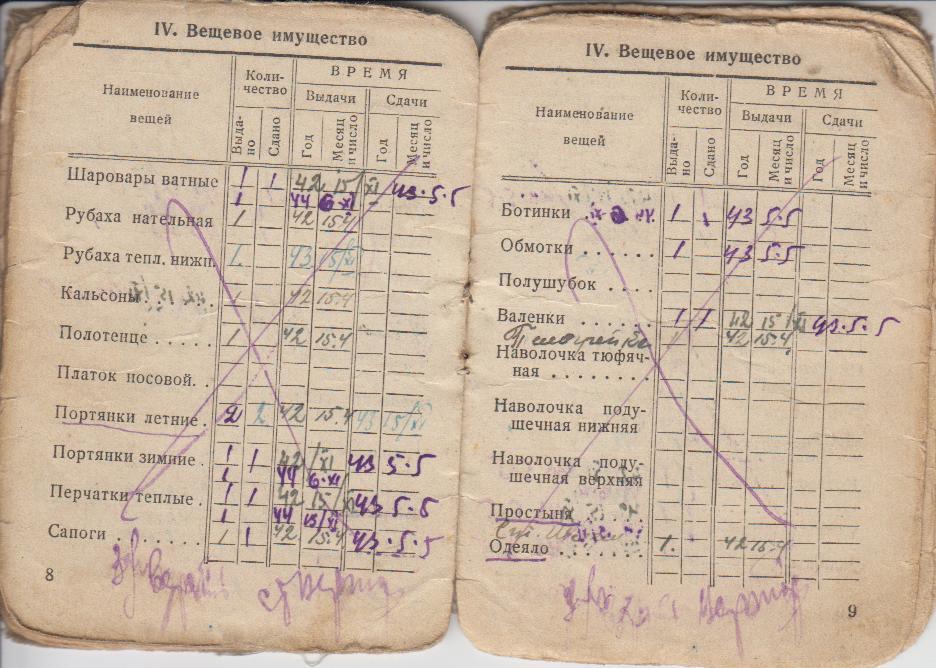 IV. Вещевое имущество
Наименование вещей
Коли-
чество
ВРЕМЯ
Выдачи
Сдачи
Выда-
но
Сдано
Год
Месяц
и число
Год
Месяц
и число
Шаровары ватные 1 1 42 15/XI 43·5·5
1 44 6·XI
Рубаха нательная 1 42 15.4
Рубаха тепл. нижн. 1. 43 15/XI
Кальсоны 1 42 15.4
Полотенце . . 1 42 15.4
Платок носовой. .
Портянки летние . 2 2 42 15.4 43 15/XI
Портянки зимние . 1 1 42 /XI 43 5·5
1 44 6·XI
Перчатки теплые . 1 1 42 15/XI 43·5·5
1 44 15/XI
Сапоги . . . . . . . 1 1 42 15.4 43·5·5
8
IV. Вещевое имущество
Наименование
вещей
Коли-
чество
ВРЕМЯ
Выдачи
Сдачи
Выда-
но
Сдано
Год
Месяц
и число
Год
Месяц
и число
Ботинки 1 1 43 5·5
Обмотки . . . . . . 1 43 5·5
Полушубок . . . .
Валенки . . . . . . 1 1 42 15/XI 43·5·5
Телогрейка 1 42 15.4
Наволочка тюфяч-
ная . . . . . . . .
Наволочка поду-
шечная нижняя
Наволочка поду-
шечная верхняя
Простыня
Одеяло . . . . . . 1. 42 15.4
9